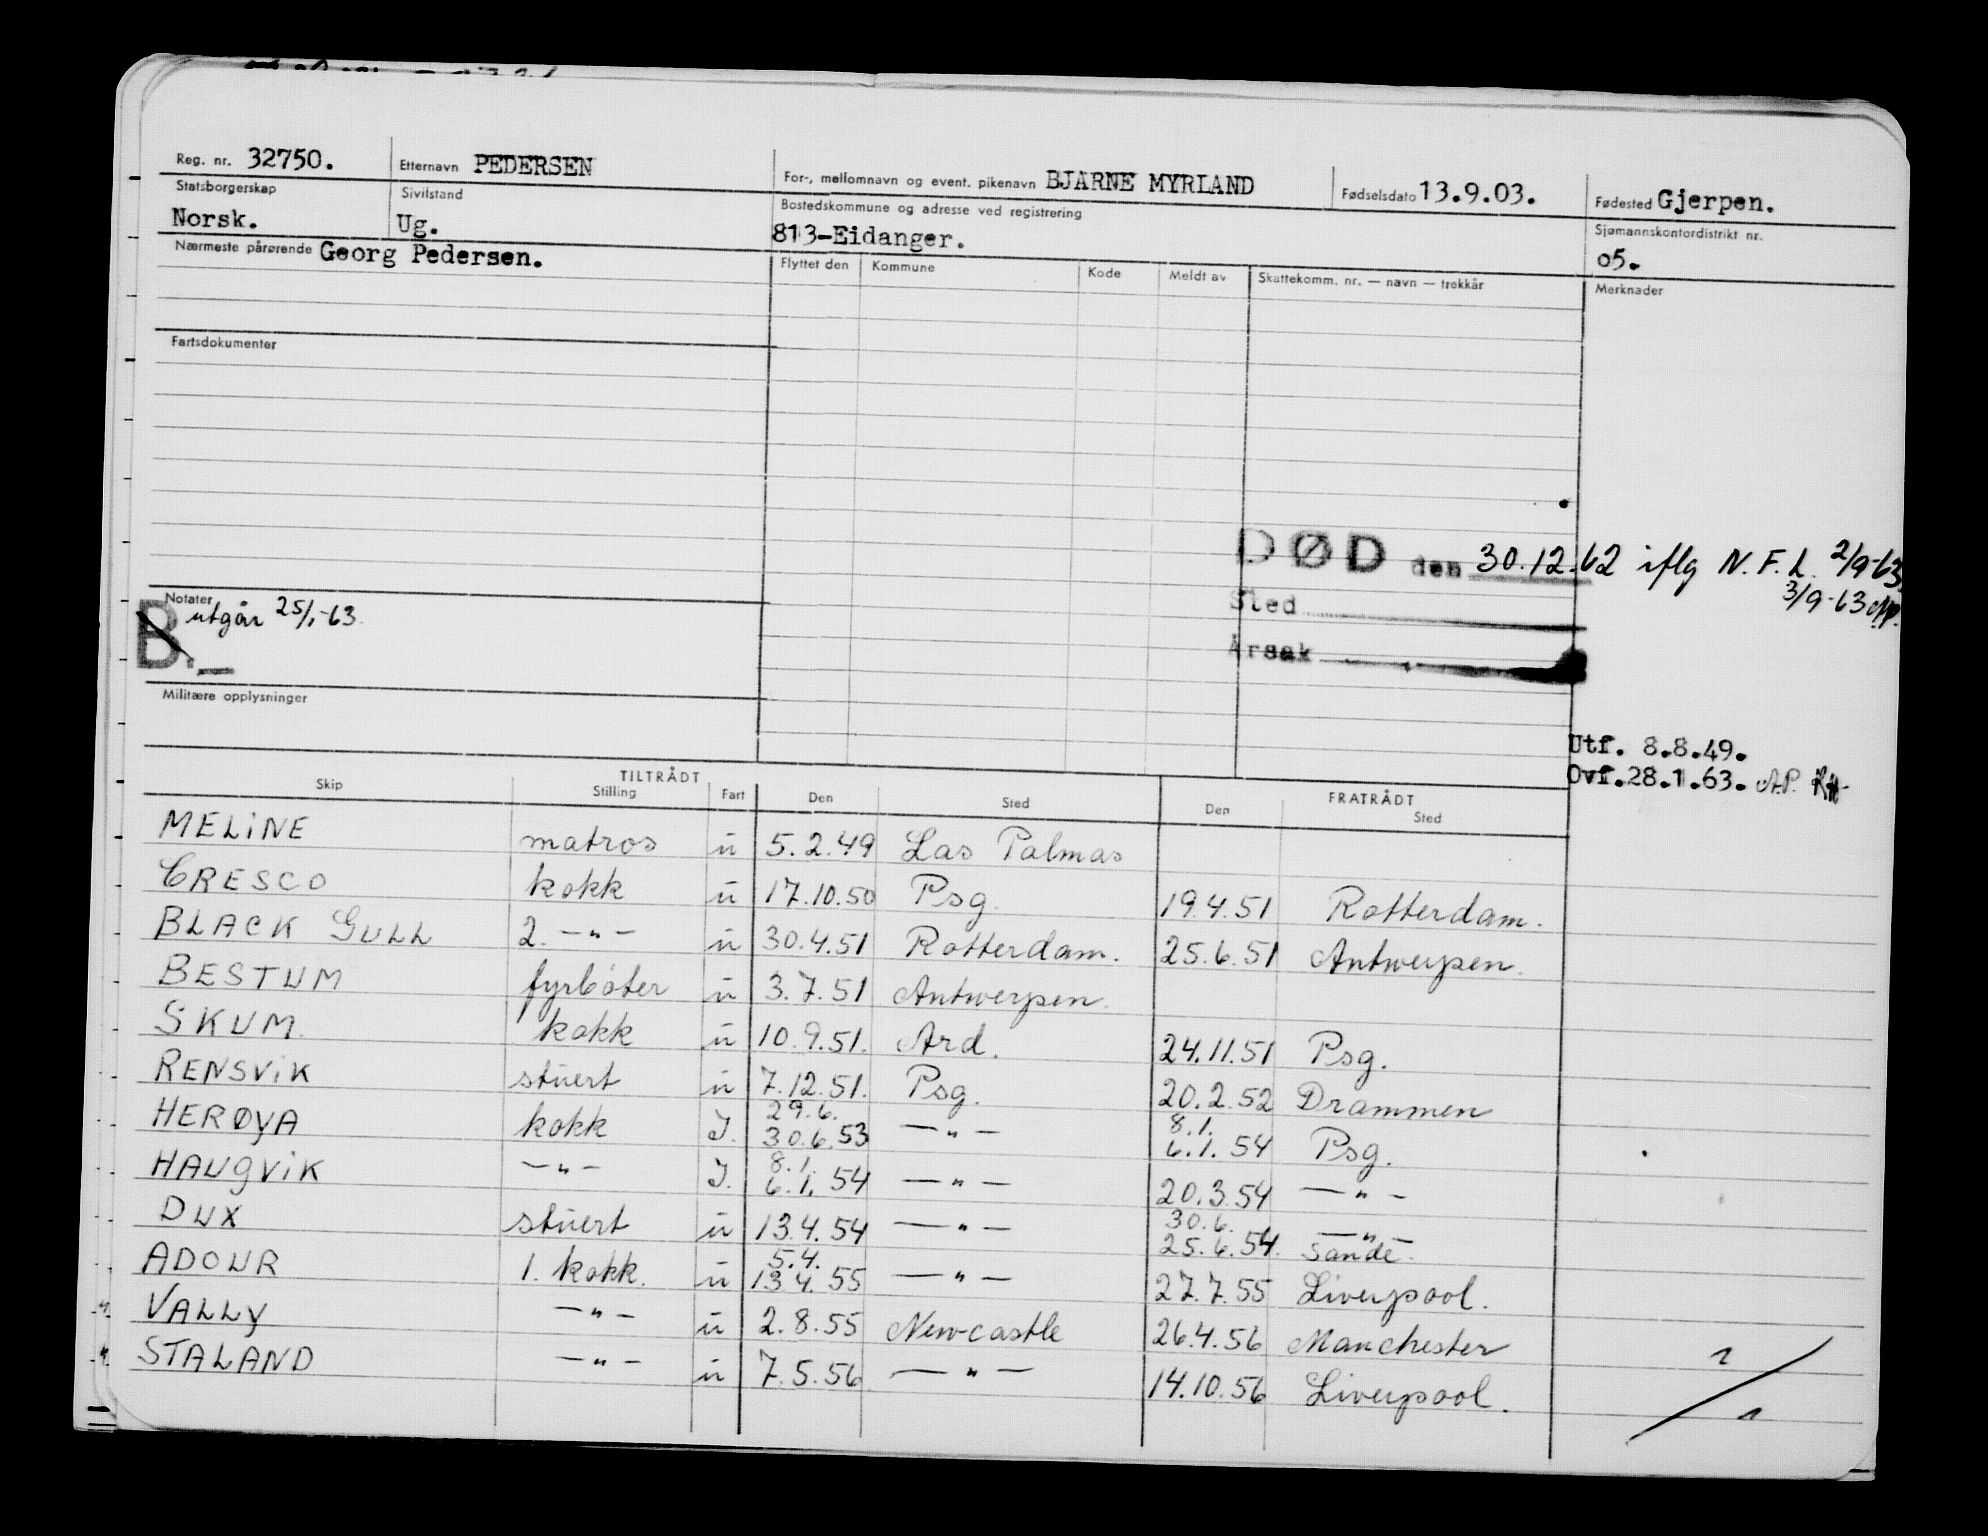 Reg. nr. 32750. Etternavn PEDERSEN For-, mellomnavn og event. pikenavn BJARNE MYRLAND Fødselsdato 13.9.03. Fødested Gjerpen.
Statsborgerskap Sivilstand Bostedskommune og adresse ved registrering Sjømannskontordistrikt nr.
Norsk. Ug. 813-Eidanger. o5.
Nærmeste pårørende Georg Pedersen. Flyttet den Kommune Kode Meldt av Skattekomm. nr. — navn — trekkår Merknader
Fartsdokumenter
DØD den 30.12.62 iflg N.F.L. 2/9-63
Sted 3/9-63
Årsak
Notater
utgår 25/1-63
B.
Militære opplysninger
Utf. 8.8.49.
Ovf.28.1.63. A.P.
TILTRÅDT FRATRÅDT
Skip Stilling Fart Den Sted Den Sted
MELINE matros u 5.2.49 Las Palmas
CRESCO kokk u 17.10.50 Psg. 19.4.51 Rotterdam.
BLACK GULL 2. —"— u 30.4.51 Rotterdam. 25.6.51 Antwerpen.
BESTUM fyrbøter u 3.7.51 Antwerpen.
SKUM kokk u 10.9.51. Ard. 24.11.51 Psg.
RENSVIK stuert u 7.12.51. Psg. 20.2.52 Drammen
29.6. 8.1.
HERØYA kokk I. 30.6.53 —"— 6.1.54 Psg.
8.1.
HAUGVIK —"— I. 6.1.54 —"— 20.3.54 —"—
30.6. —"—
DUX stuert u 13.4.54 —"— 25.6.54. Sande.
5.4.
ADOUR 1. kokk. u 13.4.55 —"— 27.7.55 Liverpool.
VALLY —"— u 2.8.55 Newcastle 26.4.56 Manchester
STALAND —"— u 7.5.56 —"— 14.10.56 Liverpool.